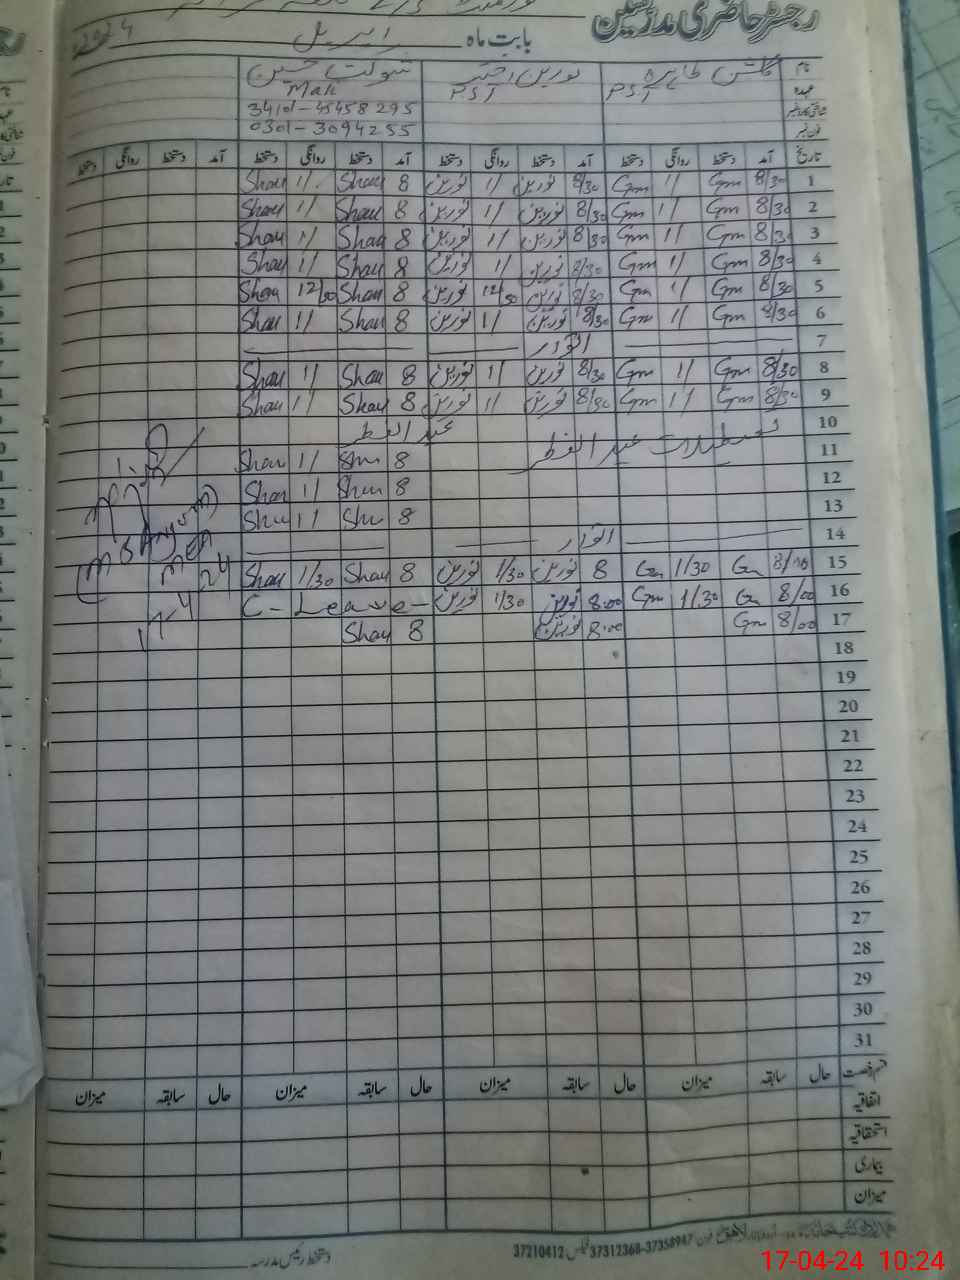 رجسٹر حاضری مدرسین
بابت ماہ اپریل 2024
نام گلشن طاہرہ نورین اختر شوکت حسین
عہدہ PST PST Mali
34101-45458295
فون نمبر 0301-3094255
تاریخ آمد دستخط روانگی دستخط آمد دستخط روانگی دستخط آمد دستخط روانگی دستخط آمد دستخط روانگی دستخط
1 8/30 Gm 11 Gm 8/30 نورین 11 نورین 8 Shau 11 Shau
2 8/30 Gm 11 Gm 8/30 نورین 11 نورین 8 Shau 11 Shau
3 8/30 Gm 11 Gm 8/30 نورین 11 نورین 8 Shau 11 Shau
4 8/30 Gm 11 Gm 8/30 نورین 11 نورین 8 Shau 11 Shau
5 8/30 Gm 11 Gm 8/30 نورین 12/30 نورین 8 Shau 12/30 Shau
6 8/30 Gm 11 Gm 8/30 نورین 11 نورین 8 Shau 11 Shau
7 اتوار
8 8/30 Gm 11 Gm 8/30 نورین 11 نورین 8 Shau 11 Shau
9 8/30 Gm 11 Gm 8/30 نورین 11 نورین 8 Shau 11 Shau
10 تعطیلات عید الفطر عید الفطر
11 8 Shu 11 Shau
12 8 Shau 11 Shau
13 8 Shu 11 Shu
14 اتوار
15 Gm 1/30 Gm 8 نورین 1/30 نورین 8 Shau 1/30 Shau
16 8/00 Gm 1/30 Gm 8:00 نورین 1/30 نورین C-Leave-
17 8/00 Gm 8:00 نورین 8 Shau
MEA
17-4-24
18
19
20
21
22
23
24
25
26
27
28
29
30
31
قسم رخصت حال سابقہ میزان حال سابقہ میزان حال سابقہ میزان حال سابقہ میزان
اتفاقیہ
استحقاقیہ
بیماری
میزان
فون 37358947-37312368 فیکس 37210412
دستخط رئیس مدرسہ
17-04-24 10:24